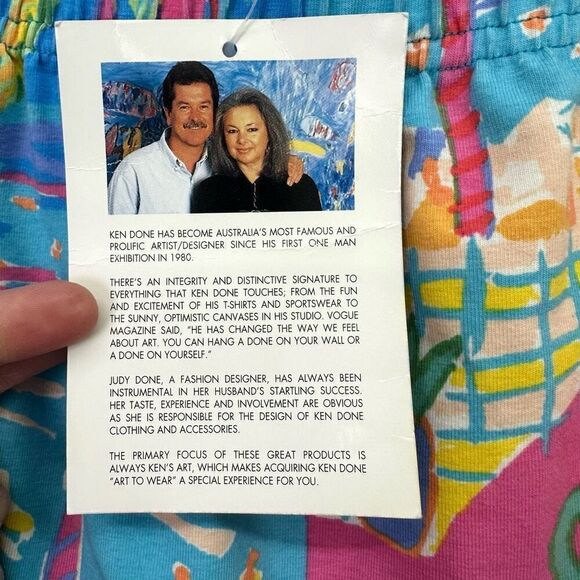 KEN DONE HAS BECOME AUSTRALIA'S MOST FAMOUS AND
PROLIFIC ARTIST/DESIGNER SINCE HIS FIRST ONE MAN
EXHIBITION IN 1980.
THERE'S AN INTEGRITY AND DISTINCTIVE SIGNATURE TO
EVERYTHING THAT KEN DONE TOUCHES; FROM THE FUN
AND EXCITEMENT OF HIS T-SHIRTS AND SPORTSWEAR TO
THE SUNNY, OPTIMISTIC CANVASES IN HIS STUDIO. VOGUE
MAGAZINE SAID, "HE HAS CHANGED THE WAY WE FEEL
ABOUT ART. YOU CAN HANG A DONE ON YOUR WALL OR
A DONE ON YOURSELF."
JUDY DONE, A FASHION DESIGNER, HAS ALWAYS BEEN
INSTRUMENTAL IN HER HUSBAND'S STARTLING SUCCESS.
HER TASTE, EXPERIENCE AND INVOLVEMENT ARE OBVIOUS
AS SHE IS RESPONSIBLE FOR THE DESIGN OF KEN DONE
CLOTHING AND ACCESSORIES.
THE PRIMARY FOCUS OF THESE GREAT PRODUCTS IS
ALWAYS KEN'S ART, WHICH MAKES ACQUIRING KEN DONE
"ART TO WEAR" A SPECIAL EXPERIENCE FOR YOU.